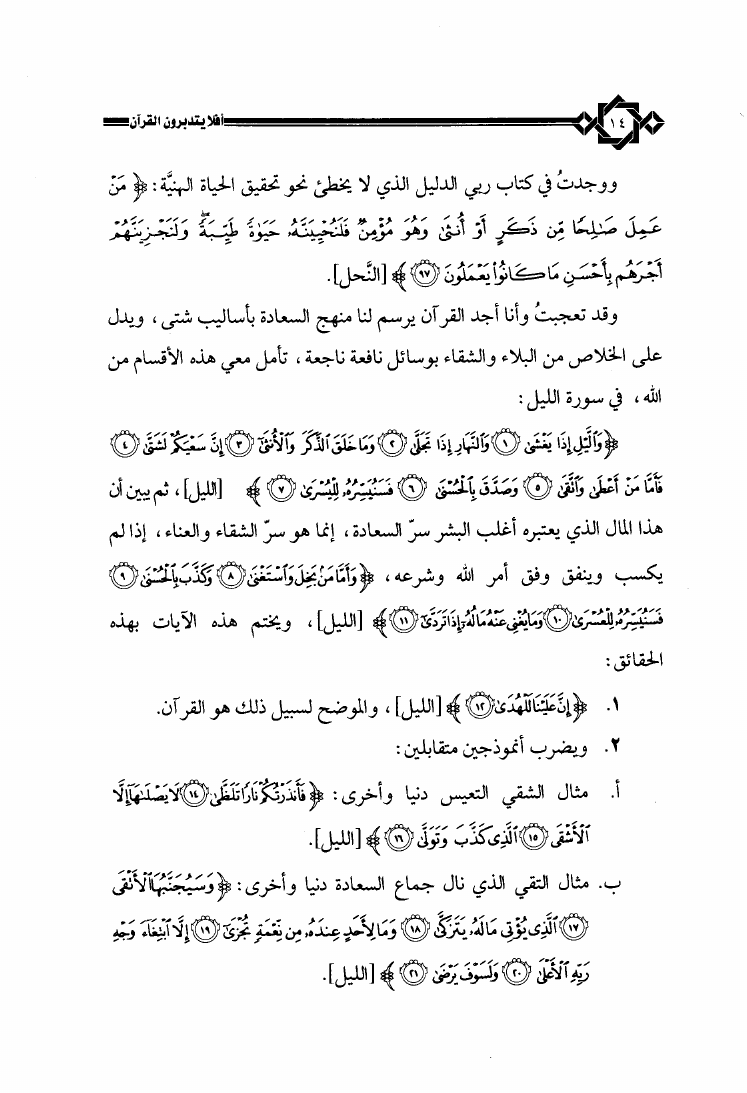 ١٤ أفلا يتدبرون القرآن
ووجدتُ في كتاب ربي الدليل الذي لا يخطئ نحو تحقيق الحياة الهنيَّة: ﴿ مَنْ
عَمِلَ صَٰلِحًا مِّن ذَكَرٍ أَوْ أُنثَىٰ وَهُوَ مُؤْمِنٌ فَلَنُحْيِيَنَّهُۥ حَيَوٰةً طَيِّبَةً ۖ وَلَنَجْزِيَنَّهُمْ
أَجْرَهُم بِأَحْسَنِ مَا كَانُوا۟ يَعْمَلُونَ ﴿٩٧﴾ ﴾ [النَّحل].
وقد تعجبتُ وأنا أجد القرآن يرسم لنا منهج السعادة بأساليب شتى، ويدل
على الخلاص من البلاء والشقاء بوسائل نافعة ناجعة، تأمل معي هذه الأقسام من
الله، في سورة الليل:
﴿ وَٱلَّيْلِ إِذَا يَغْشَىٰ ﴿١﴾ وَٱلنَّهَارِ إِذَا تَجَلَّىٰ ﴿٢﴾ وَمَا خَلَقَ ٱلذَّكَرَ وَٱلْأُنثَىٰٓ ﴿٣﴾ إِنَّ سَعْيَكُمْ لَشَتَّىٰ ﴿٤﴾
فَأَمَّا مَنْ أَعْطَىٰ وَٱتَّقَىٰ ﴿٥﴾ وَصَدَّقَ بِٱلْحُسْنَىٰ ﴿٦﴾ فَسَنُيَسِّرُهُۥ لِلْيُسْرَىٰ ﴿٧﴾ ﴾ [الليل]، ثم يبين أن
هذا المال الذي يعتبره أغلب البشر سرّ السعادة، إنما هو سرّ الشقاء والعناء، إذا لم
يكسب وينفق وفق أمر الله وشرعه، ﴿ وَأَمَّا مَنۢ بَخِلَ وَٱسْتَغْنَىٰ ﴿٨﴾ وَكَذَّبَ بِٱلْحُسْنَىٰ ﴿٩﴾
فَسَنُيَسِّرُهُۥ لِلْعُسْرَىٰ ﴿١٠﴾ وَمَا يُغْنِى عَنْهُ مَالُهُۥٓ إِذَا تَرَدَّىٰٓ ﴿١١﴾ ﴾ [الليل]، ويختم هذه الآيات بهذه
الحقائق:
١. ﴿ إِنَّ عَلَيْنَا لَلْهُدَىٰ ﴿١٢﴾ ﴾ [الليل]، والموضح لسبيل ذلك هو القرآن.
٢. ويضرب أنموذجين متقابلين:
أ. مثال الشقي التعيس دنيا وأخرى: ﴿ فَأَنذَرْتُكُمْ نَارًا تَلَظَّىٰ ﴿١٤﴾ لَا يَصْلَىٰهَآ إِلَّا
ٱلْأَشْقَى ﴿١٥﴾ ٱلَّذِى كَذَّبَ وَتَوَلَّىٰ ﴿١٦﴾ ﴾ [الليل].
ب. مثال التقي الذي نال جماع السعادة دنيا وأخرى: ﴿ وَسَيُجَنَّبُهَا ٱلْأَتْقَى
﴿١٧﴾ ٱلَّذِى يُؤْتِى مَالَهُۥ يَتَزَكَّىٰ ﴿١٨﴾ وَمَا لِأَحَدٍ عِندَهُۥ مِن نِّعْمَةٍ تُجْزَىٰٓ ﴿١٩﴾ إِلَّا ٱبْتِغَآءَ وَجْهِ
رَبِّهِ ٱلْأَعْلَىٰ ﴿٢٠﴾ وَلَسَوْفَ يَرْضَىٰ ﴿٢١﴾ ﴾ [الليل].